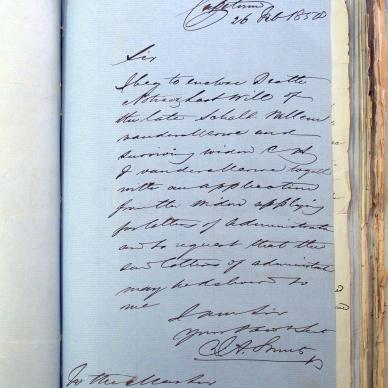 Capetown
26 Feb 1850
Sir
I beg to enclose Death
Notice & last Will of
the late Schalk Willem
van der Merwe and
surviving widow C A
J van der Merwe together
with an application
from the Widow applying
for letters of Administration
and to request that the
said letters of administration
may be delivered to
me
I am Sir
Your Obed Servt
To the Master